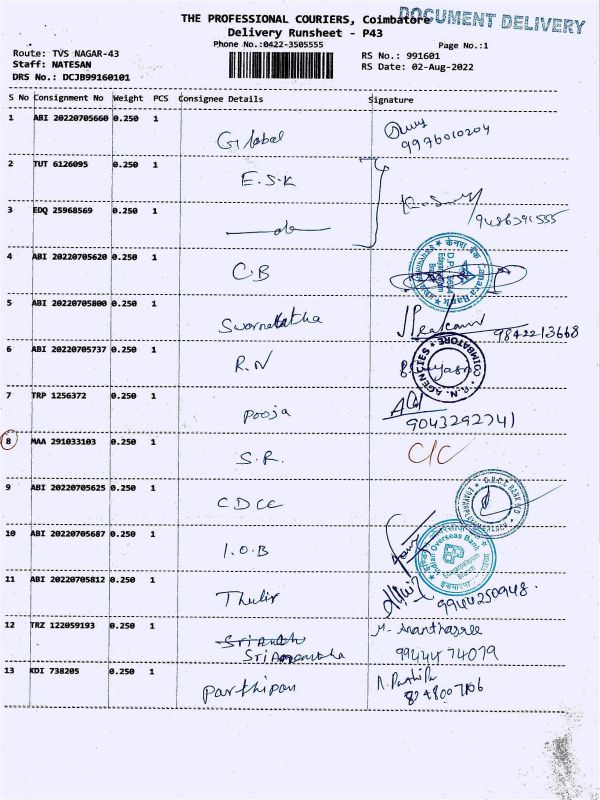 DOCUMENT DELIVERY
THE PROFESSIONAL COURIERS, Coimbatore
Delivery Runsheet - P43
Phone No.:0422-3505555
Page No.:1
Route: TVS NAGAR-43
RS No.: 991601
Staff: NATESAN
RS Date: 02-Aug-2022
DRS No.: DCJB99160101
S No Consignment No Weight PCS Consignee Details Signature
1 ABI 20220705660 0.250 1 Global 9976010204
2 TUT 6126095 0.250 1 E.S.K
3 EDQ 25968569 0.250 1 do 9486391555
4 ABI 20220705620 0.250 1 C.B
केनरा बैंक Canara Bank
5 ABI 20220705800 0.250 1 9842213668
6 ABI 20220705737 0.250 1 R.N
R.N. AGENCIES * COIMBATORE
7 TRP 1256372 0.250 1 Pooja
9043292741
8 MAA 291033103 0.250 1 S.R. C/C
9 ABI 20220705625 0.250 1 CDCC
10 ABI 20220705687 0.250 1 I.O.B
Indian Overseas Bank
Branch
11 ABI 20220705812 0.250 1 Thulir 9944250948.
12 TRZ 122059193 0.250 1 M. Ananthasree
9944474079
13 KDI 738205 0.250 1 Parthipan